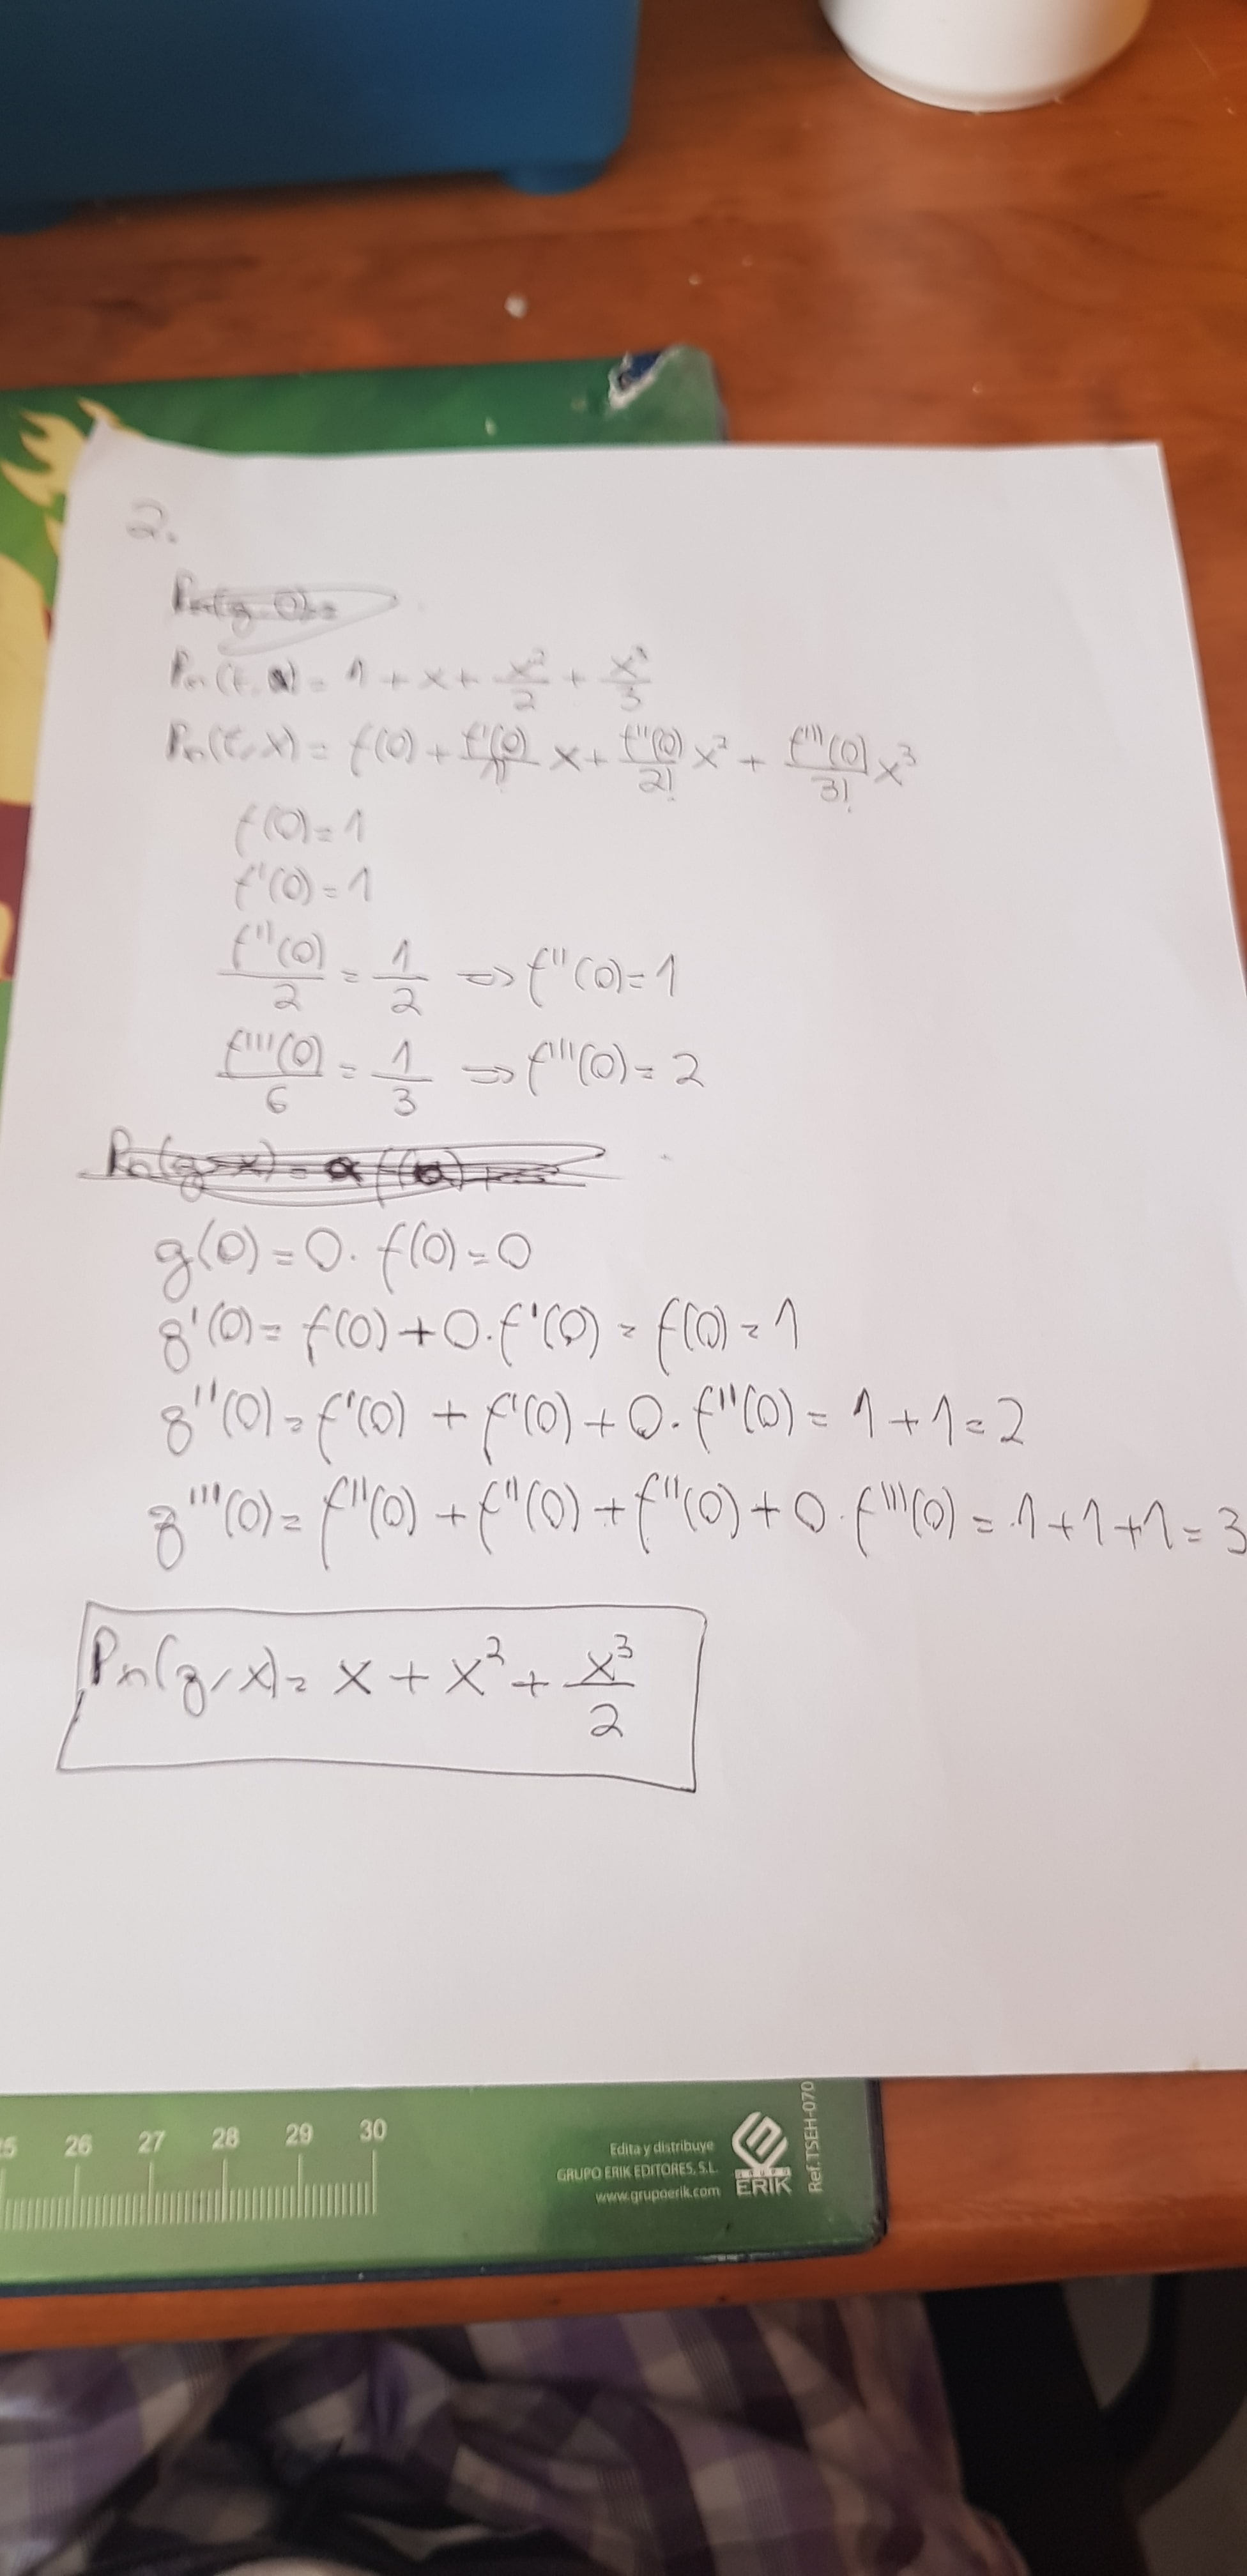 2.
Pn(f,x) = 1 + x + x²/2 + x³/3
Pn(f,x) = f(0) + f'(0)/1! x + f''(0)/2! x² + f'''(0)/3! x³
f(0) = 1
f'(0) = 1
f''(0)/2 = 1/2 ⇒ f''(0) = 1
f'''(0)/6 = 1/3 ⇒ f'''(0) = 2
g(0) = 0 · f(0) = 0
g'(0) = f(0) + 0 · f'(0) = f(0) = 1
g''(0) = f'(0) + f'(0) + 0 · f''(0) = 1 + 1 = 2
g'''(0) = f''(0) + f''(0) + f''(0) + 0 · f'''(0) = 1 + 1 + 1 = 3
Pn(g,x) = x + x² + x³/2
26 27 28 29 30
Edita y distribuye
GRUPO ERIK EDITORES, S.L.
www.grupoerik.com
GRUPO
ERIK
Ref. TSEH-070